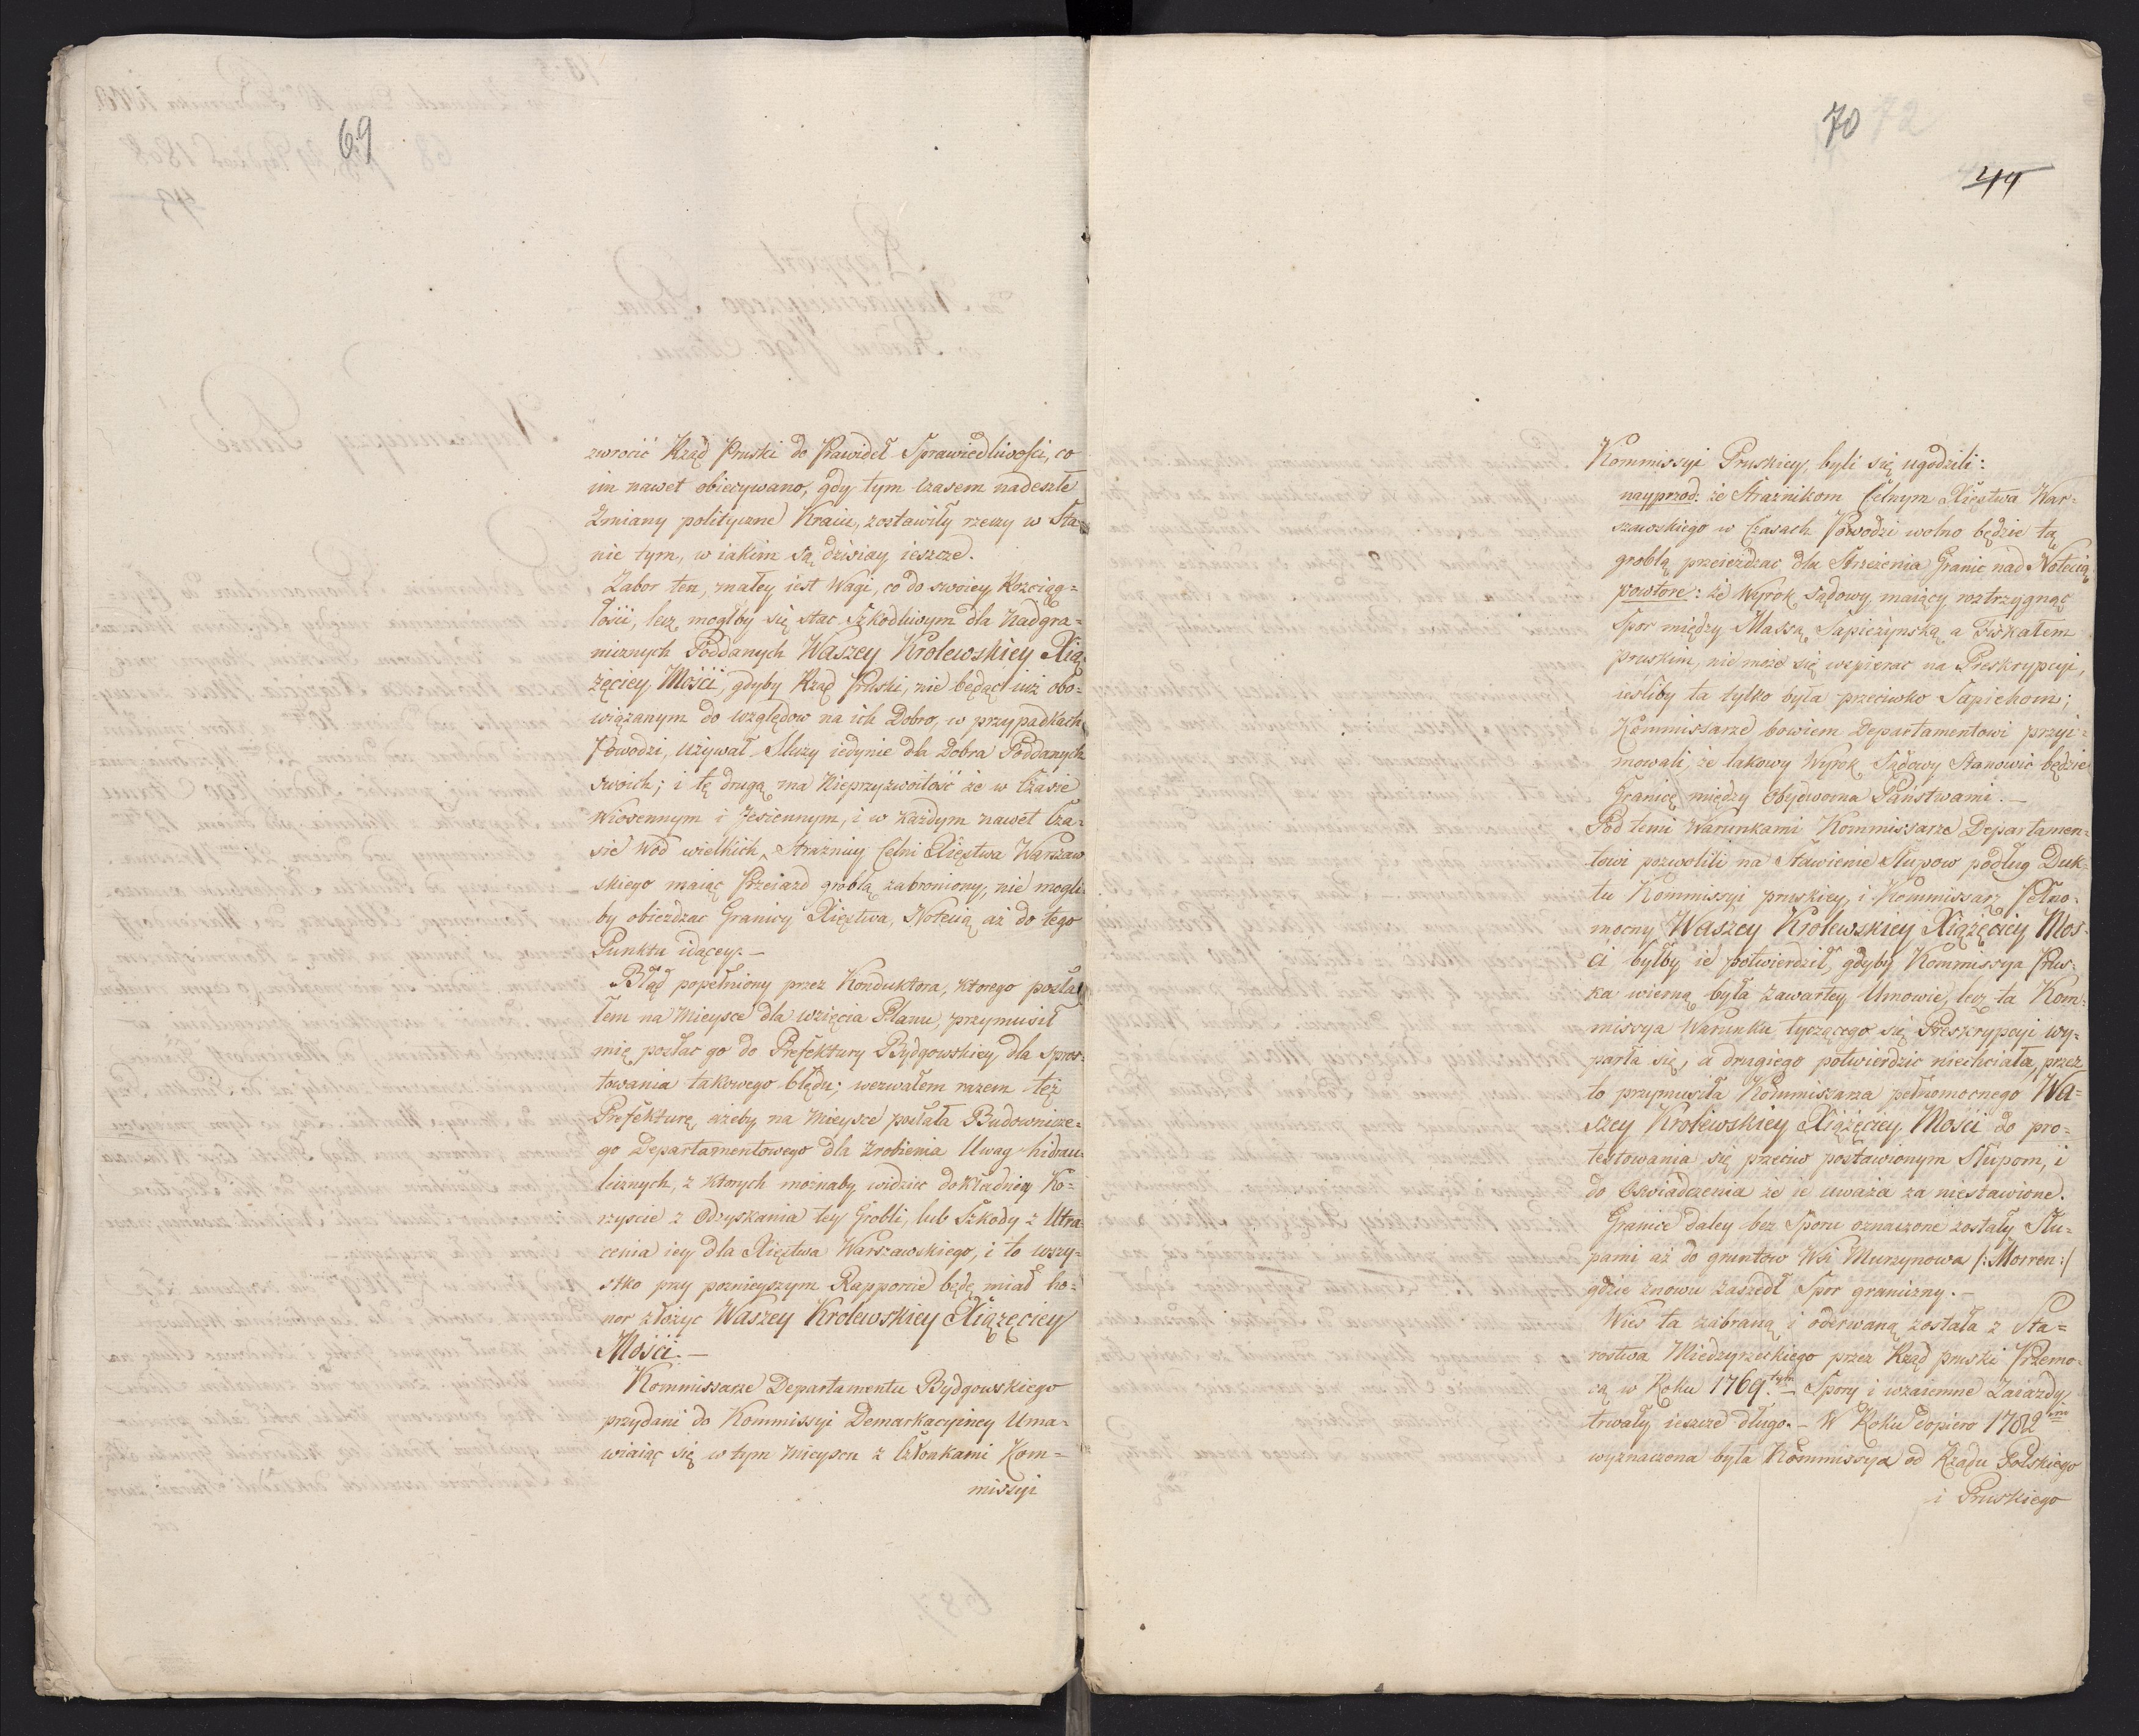 69
zwrocić Rząd Pruski do Prawideł Sprawiedliwości, co
im nawet obiecywano, gdy tym czasem nadeszłe
Zmiany polityczne Kraiu, zostawiły rzeczy w Sta=
nie tym, w iakim są dzisiay ieszcze.
Zabor ten, małey iest Wagi, co do swoiey Rozciąg=
łości, lecz mogłby się stac Szkodliwym dla Nadgra=
nicznych Poddanych Waszey Krolewskiey Xią=
żęciey Mości, gdyby Rząd Pruski, nie będąc iuż obo=
wiązanym do względow na ich Dobro, w przypadkach
Powodzi, używał Sluzy iedynie dla Dobra Poddanych
swoich; i tę drugą ma Nieprzyzwoitość że w Czasie
Wiosennym i Jesiennym, i w każdym nawet Cza=
sie Wod wielkich, Strażnicy Celni Xięstwa Warszaw
skiego maiąc Przeiazd groblą zabroniony, nie mogli
by obieżdzac Granicy Xięstwa, Notecią aż do tego
Punktu idącey.—
Błąd popełniony przez Konduktora, ktorego posła=
łem na Mieysce dla wzięcia Planu, przymusił
mię posłac go do Prefektury Bydgowskiey dla spros=
towania takowego błędu; wezwałem razem też
Prefekturę ażeby na Mieysce posłała Budownicze=
go Departamentowego dla zrobienia Uwag hidrau=
licznych, z ktorych możnaby widzieć dokładniey Ko=
rzyscie z Odzyskania tey Grobli, lub Szkody z Utra=
cenia iey dla Xięstwa Warszawskiego, i to wszy=
stko przy poznieyszym Rapporcie będę miał ho=
nor złożyc Waszey Krolewskiey Xiążęciey
Mości.—
Kommissarze Departamentu Bydgowskiego
przydani do Kommissyi Demarkacyiney Uma=
wiaiąc się w tym Mieyscu z Członkami Kom=
missyi
70 72
44
Kommissyi Pruskiey, byli się ugodzili:
nayprzod: że Strażnikom Celnym Xięstwa War=
szawskiego w Czasach Powodzi wolno będzie tą
groblą przeieżdzac, dla Strzeżenia Granic nad Notecią
powtore: że Wyrok Sądowy, maiący roztrzygnąć
Spor między Massą Sapieżyńską a Fiskałem
pruskim, nie może się wspierac na Preskrypcyi,
iesliby ta tylko była przeciwko Sapiehom;
Kommissarze bowiem Departamentowi przyi=
mowali, że takowy Wyrok Sądowy stanowić będzie
Granicę między Obydwoma Państwami.—
Pod temi Warunkami Kommissarze Departamen=
towi pozwolili na Stawienie Słupow podług Duk=
tu Kommissyi pruskiey, i Kommissarz Pełno=
mocny Waszey Krolewskiey Xiążęciey Mos=
ci byłby ie potwierdził, gdyby Kommissya Prus=
ka wierną była zawartey Umowie, lecz ta Kom=
missya Warunku tyczącego się Preskrypcyi wy=
parła się, a drugiego potwierdzic niechciała, przez
to przymusiła Kommissarza pełnomocnego Wa=
szey Krolewskiey Xiążęciey Mości do pro=
testowania się przeciw postawionym Słupom, i
do Oświadczenia że ie uważa za niestawione.
Granice daley bez Sporu oznaczone zostały Słu=
pami aż do gruntow Wsi Murzynowa /: Morren:/
gdzie znowu zaszedł Spor graniczny.—
Wies ta zabraną i oderwaną została z Sta=
rostwa Miedzyrzeckiego przez Rząd pruski Przemo=
cą w Roku 1769.tym— Spory i wzaiemne Zaiazdy
trwały ieszcze długo.— W Roku dopiero 1782im
wyznaczona była Kommissya od Rządu Polskiego
i Pruskiego